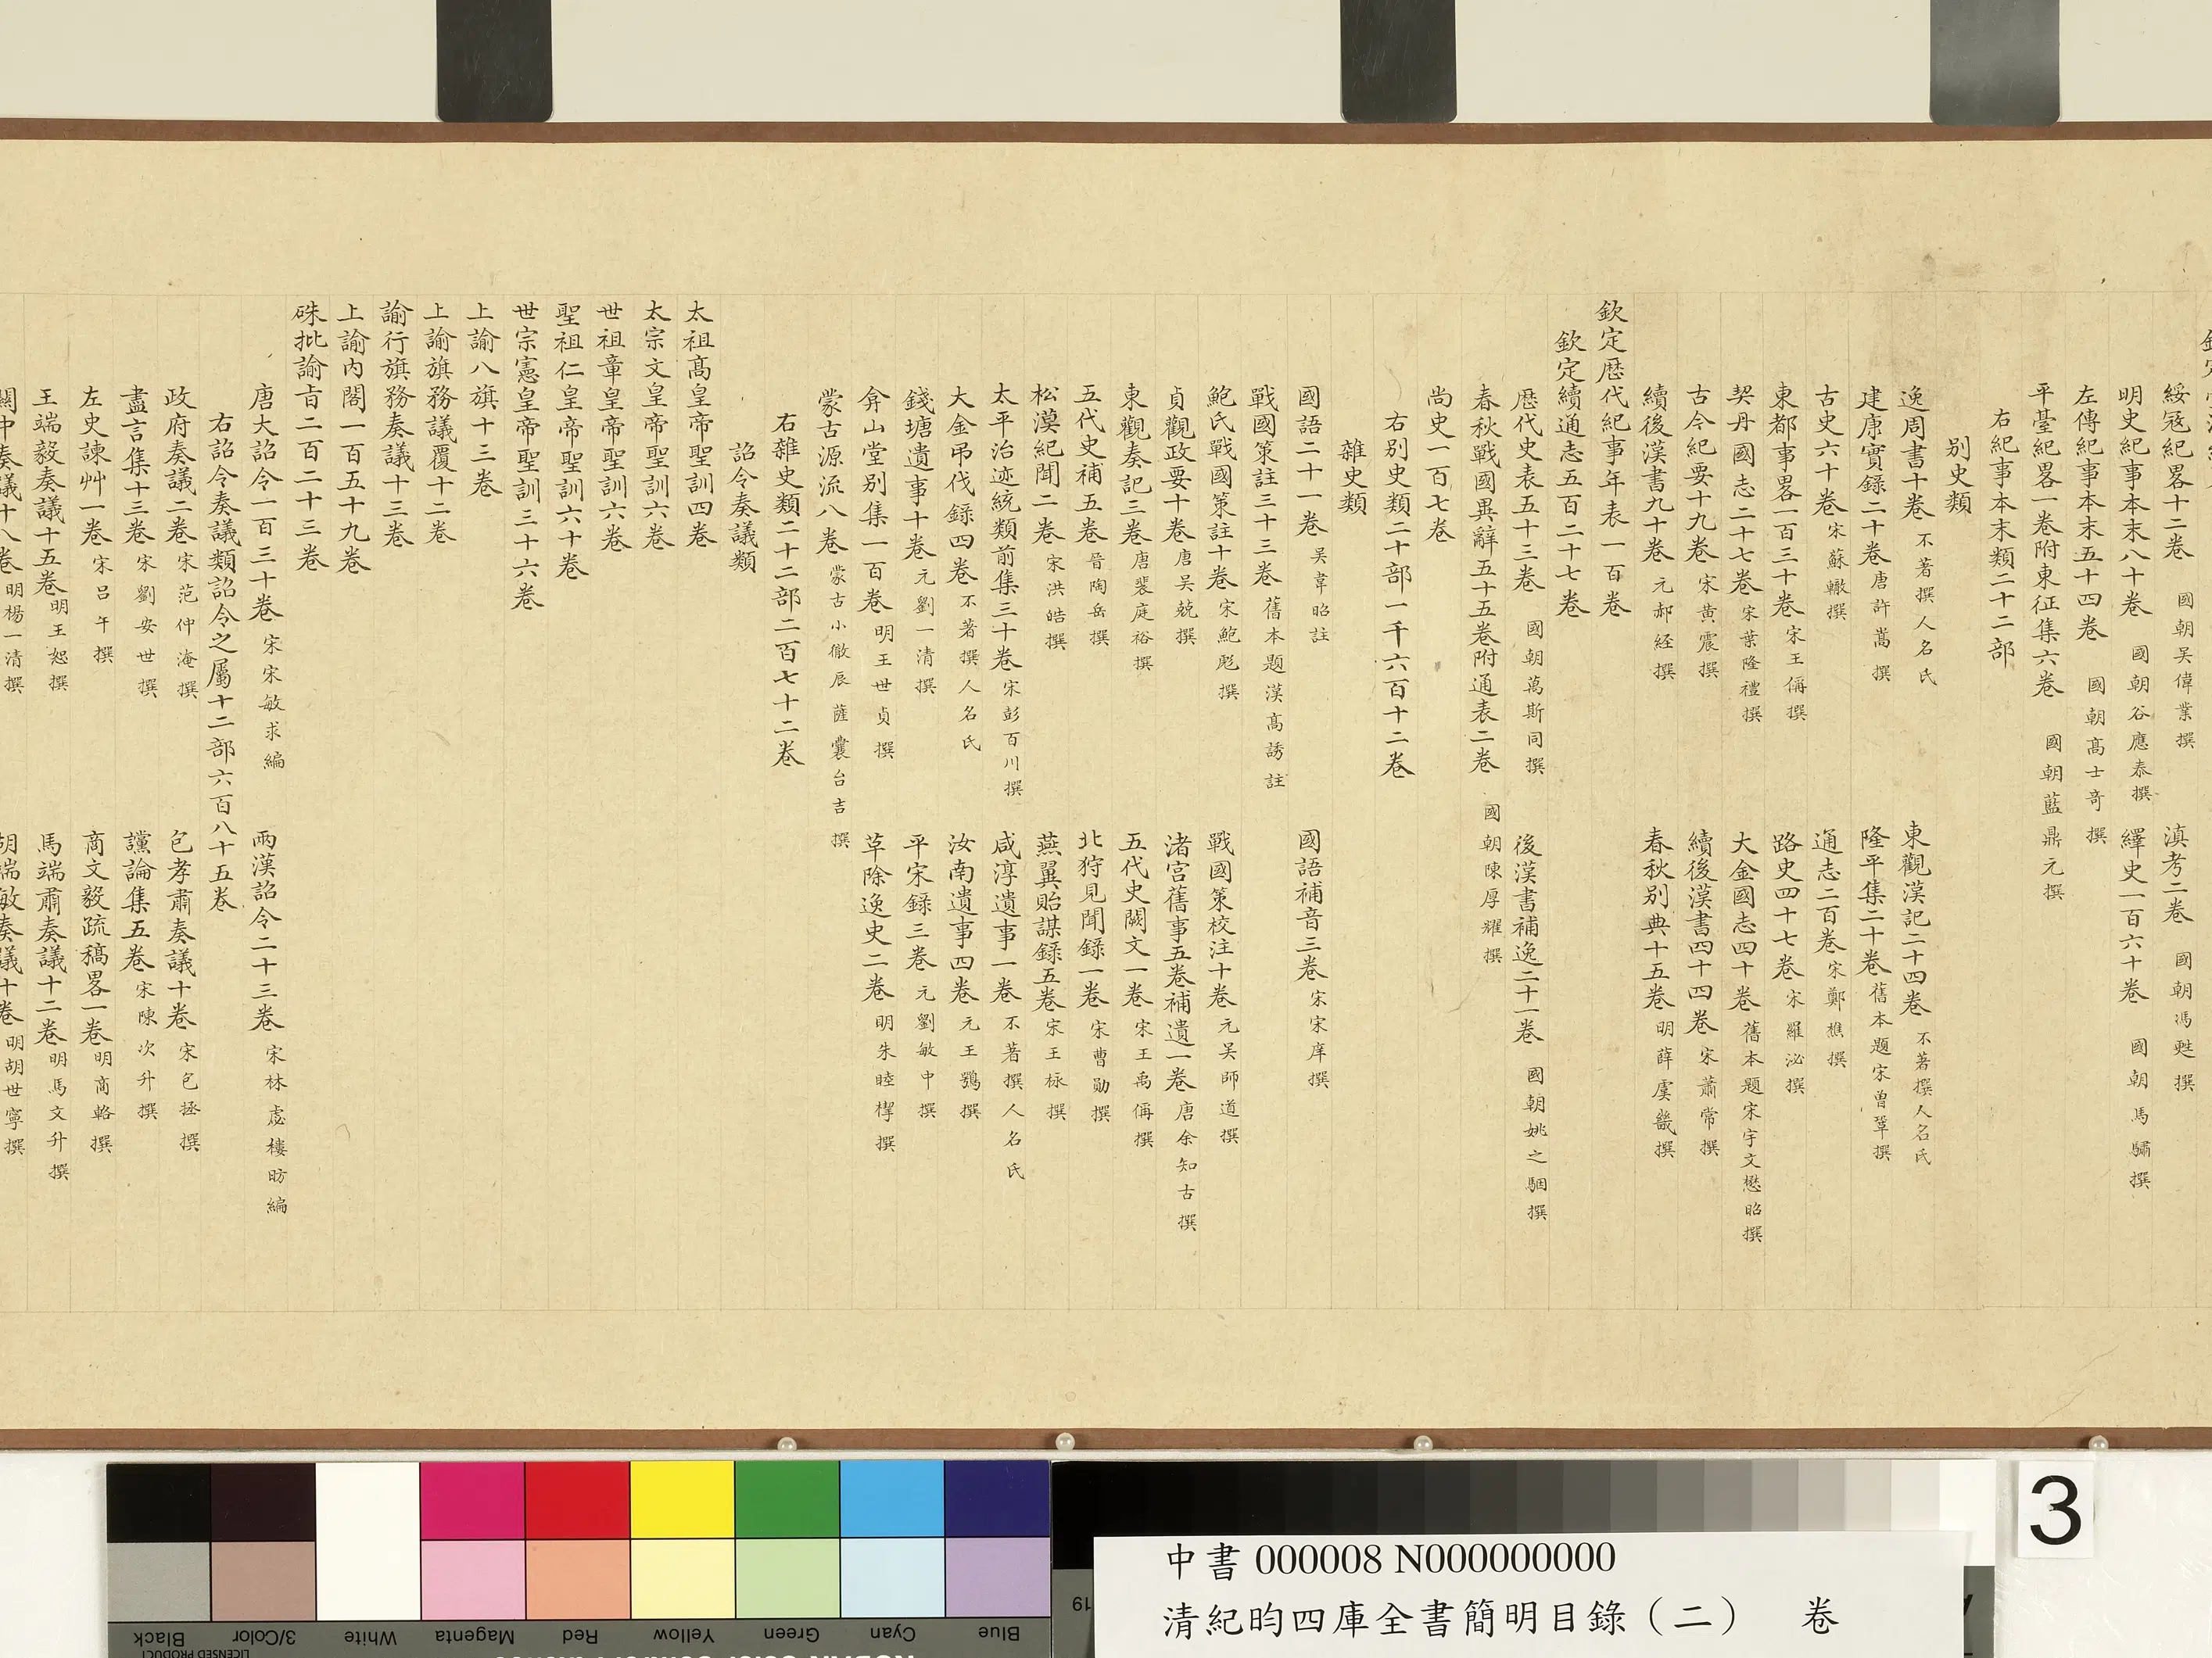 綏寇紀畧十二卷 國朝吳偉業撰 滇考二卷 國朝馮甦撰
明史紀事本末八十卷 國朝谷應泰撰 繹史一百六十卷 國朝馬驌撰
左傳紀事本末五十四卷 國朝高士奇撰
平臺紀畧一卷附東征集六卷 國朝藍鼎元撰
右紀事本末類二十二部
别史類
逸周書十卷 不著撰人名氏 東觀漢記二十四卷 不著撰人名氏
建康實錄二十卷 唐許嵩撰 隆平集二十卷 舊本題宋曾鞏撰
古史六十卷 宋蘇轍撰 通志二百卷 宋鄭樵撰
東都事畧一百三十卷 宋王偁撰 路史四十七卷 宋羅泌撰
契丹國志二十七卷 宋葉隆禮撰 大金國志四十卷 舊本題宋宇文懋昭撰
古今紀要十九卷 宋黄震撰 續後漢書四十四卷 宋蕭常撰
續後漢書九十卷 元郝經撰 春秋别典十五卷 明薛虞畿撰
欽定歷代紀事年表一百卷
欽定續通志五百二十七卷
歷代史表五十三卷 國朝萬斯同撰 後漢書補逸二十一卷 國朝姚之駰撰
春秋戰國異辭五十五卷附通表二卷 國朝陳厚耀撰
尚史一百七卷
右别史類二十部一千六百十二卷
雜史類
國語二十一卷 吳韋昭註 國語補音三卷 宋宋庠撰
戰國策註三十三卷 舊本題漢高誘註
鮑氏戰國策註十卷 宋鮑彪撰 戰國策校注十卷 元吴師道撰
貞觀政要十卷 唐吴兢撰 渚宫舊事五卷補遺一卷 唐余知古撰
東觀奏記三卷 唐裴庭裕撰 五代史闕文一卷 宋王禹偁撰
五代史補五卷 晉陶岳撰 北狩見聞錄一卷 宋曹勛撰
松漠紀聞二卷 宋洪皓撰 燕翼貽謀錄五卷 宋王栐撰
太平治迹統類前集三十卷 宋彭百川撰 咸淳遺事一卷 不著撰人名氏
大金弔伐錄四卷 不著撰人名氏 汝南遺事四卷 元王鶚撰
錢塘遺事十卷 元劉一清撰 平宋錄三卷 元劉敏中撰
弇山堂别集一百卷 明王世貞撰 革除逸史二卷 明朱睦㮮撰
蒙古源流八卷 蒙古小徹辰薩囊台吉撰
右雜史類二十二部二百七十二卷
詔令奏議類
太祖高皇帝聖訓四卷
太宗文皇帝聖訓六卷
世祖章皇帝聖訓六卷
聖祖仁皇帝聖訓六十卷
世宗憲皇帝聖訓三十六卷
上諭八旗十三卷
上諭旗務議覆十二卷
諭行旗務奏議十三卷
上諭内閣一百五十九卷
硃批諭旨二百二十三卷
唐大詔令一百三十卷 宋宋敏求編 兩漢詔令二十三卷 宋林虙樓昉編
右詔令奏議類詔令之屬十二部六百八十五卷
政府奏議二卷 宋范仲淹撰 包孝肅奏議十卷 宋包拯撰
盡言集十三卷 宋劉安世撰 讜論集五卷 宋陳次升撰
左史諫艸一卷 宋吕午撰 商文毅疏稿畧一卷 明商輅撰
王端毅奏議十五卷 明王恕撰 馬端肅奏議十二卷 明馬文升撰
關中奏議十八卷 明楊一清撰 胡端敏奏議十卷 明胡世寧撰
3
中書 000008 N000000000
清紀昀四庫全書簡明目錄（二） 卷
Black 3/Color White Magenta Red Yellow Green Cyan Blue
LICENSED PRODUCT
19